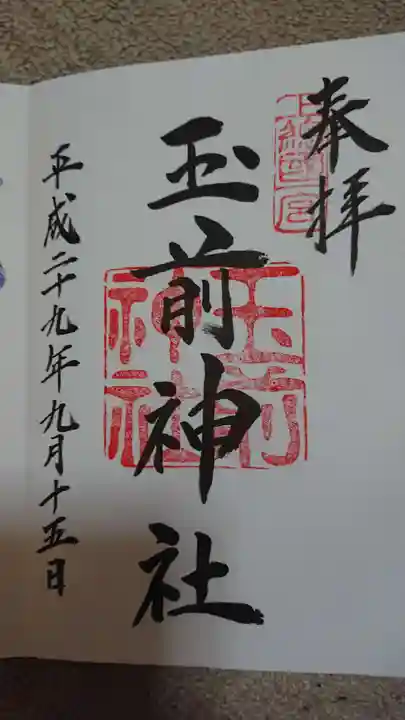 奉拝
玉前神社
玉前神社
平成二十九年九月十五日